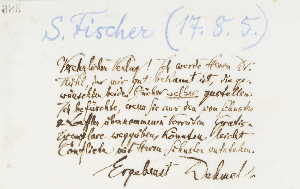 S. Fischer (17. 8. 5.)
Verehrlicher Verlag! Ich werde Herrn Dr.
Kühl, der mir gut bekannt ist, die ge-
wünschten beiden Bücher selbst zustellen.
Ich befürchte, wenn Sie aus den von Schuster
& Loeffler übernommenen Gratis-
exemplare weggeben, könnten leicht
Conflicte mit Herrn Schuster entstehen.
Ergebenst Dehmel